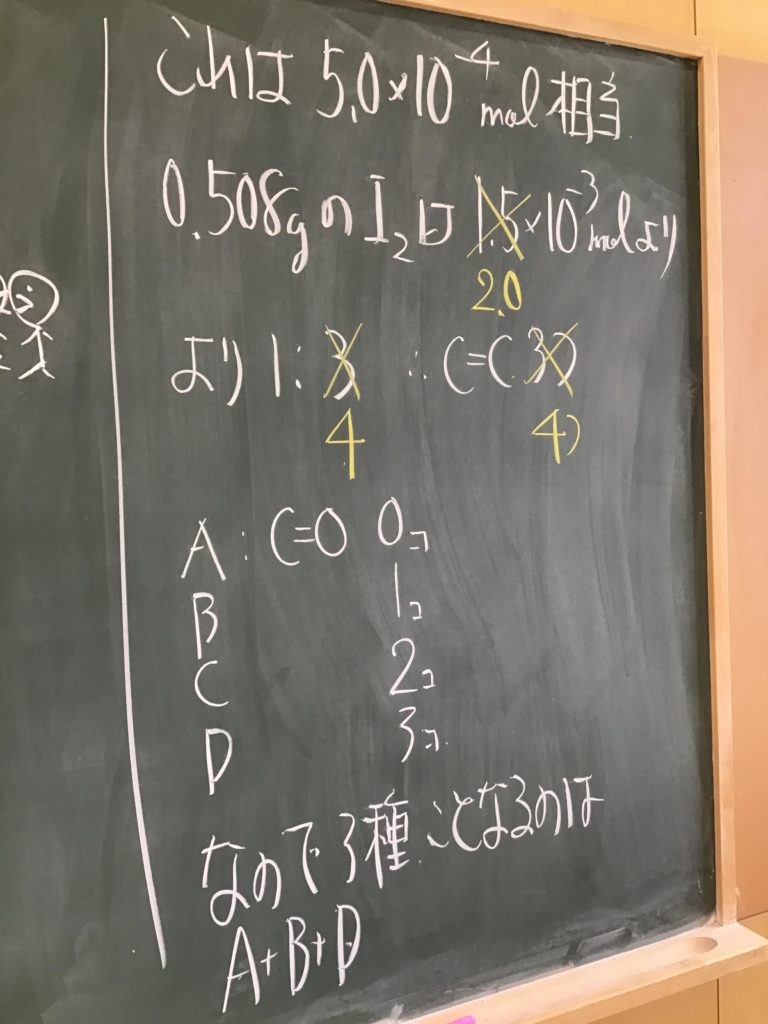 これは 5.0×10⁻⁴ mol 相当
0.508gのI₂は 1.5×10⁻³molより
2.0
より 1:3 ∴ C=C 3コ
4 4コ
A: C=O 0コ
B 1コ
C 2コ
D 3コ
なので3種ことなるのは
A+B+D